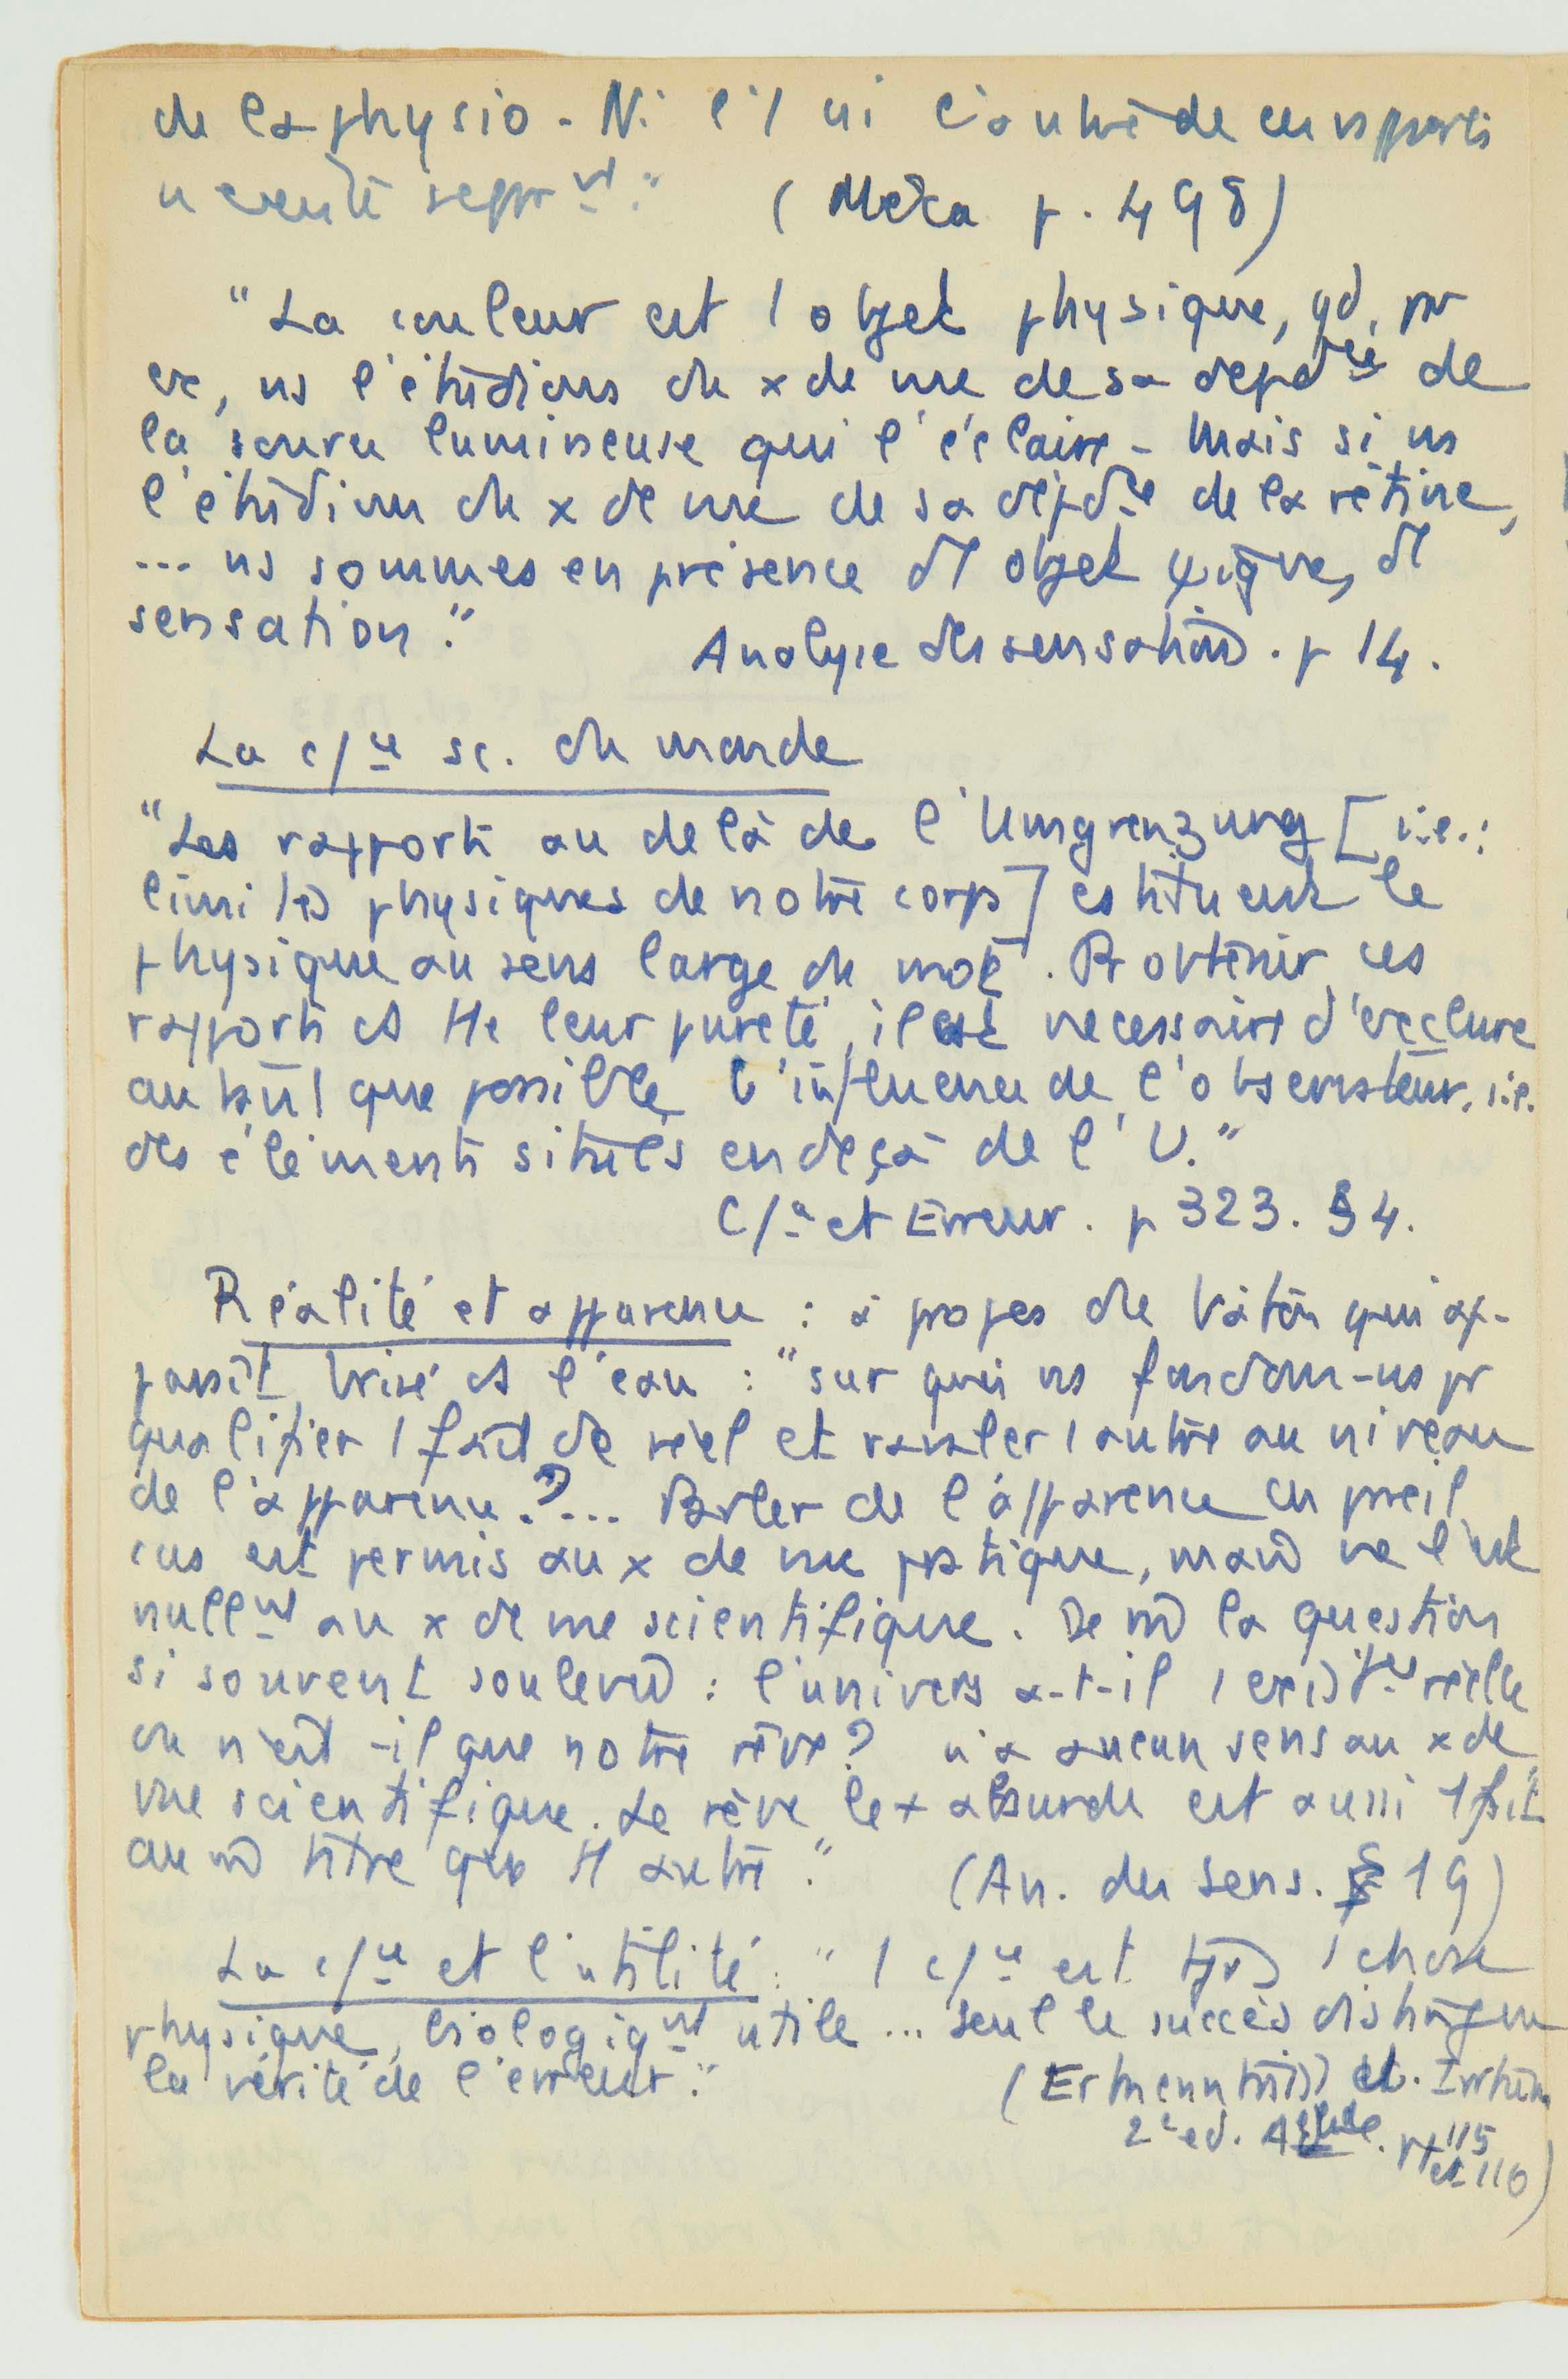 de la physio - Ni l'1 ni l'autre de ces rapports
n'existe sépar^mt." (Méca p. 498)
"La couleur est 1 objet physique, qd, pr
ex, ns l'étudions du x de vue de sa dépd^ce de
la source lumineuse qui l'éclaire - Mais si ns
l'étudions du x de vue de sa dépd^ce de la rétine,
... ns sommes en présence d'1 objet ψique, d'1
sensation." Analyse des sensations. p 14.
La c/^ce sc. du monde
"Les rapports au delà de l'Umgrenzung [i.e.:
limites physiques de notre corps] cstituent le
physique au sens large du mot. Pr obtenir ces
rapports ds tte leur pureté, il est nécessaire d'exclure
autant que possible l'influence de l'observateur, i.e.
des éléments situés en deçà de l'U."
C/^ce et Erreur. p 323. §4.
Réalité et apparence : à propos du bâton qui ap-
paraît brisé ds l'eau : "sur quoi ns fondons-ns pr
qualifier 1 fait de réel et ravaler 1 autre au niveau
de l'apparence ?... Parler de l'apparence en pareil
cas est permis au x de vue pratique, mais ne l'est
null^mt au x de vue scientifique. De m̂ la question
si souvent soulevée : l'univers a-t-il 1 exist^ce réelle
ou n'est-il que notre rêve ? n'a aucun sens au x de
vue scientifique. Le rêve le + absurde est aussi 1 fait
au m̂ titre que tt autre." (An. des Sens. § 19)
La c/^ce et l'utilité : "1 c/^ce est tjrs 1 chose
physique, biologiq^mt utile ... Seul le succès distingue
la vérité de l'erreur."
2^e ed.